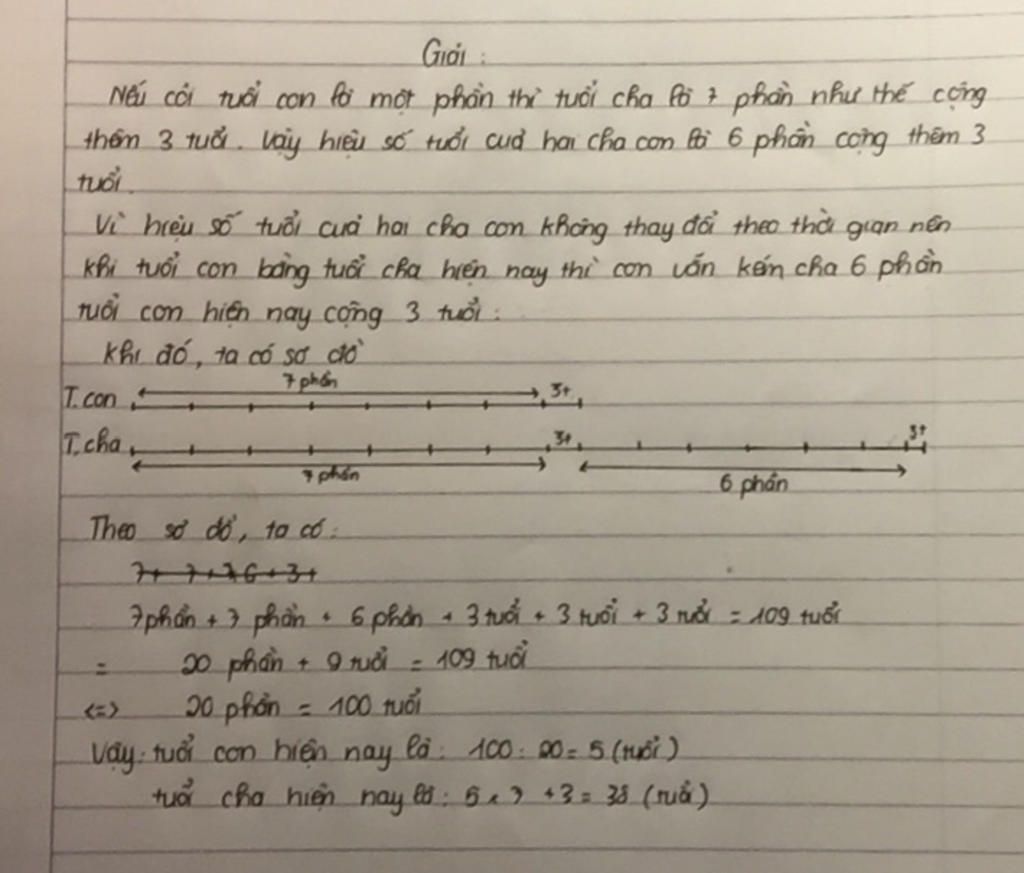 Giải :
Nếu coi tuổi con là một phần thì tuổi cha là 7 phần như thế cộng
thêm 3 tuổi. Vậy hiệu số tuổi của hai cha con là 6 phần cộng thêm 3
tuổi.
Vì hiệu số tuổi của hai cha con không thay đổi theo thời gian nên
khi tuổi con bằng tuổi cha hiện nay thì con vẫn kém cha 6 phần
tuổi con hiện nay cộng 3 tuổi :
Khi đó, ta có sơ đồ
7 phần
T. con 3t
T. cha 3t 3t
7 phần 6 phần
Theo sơ đồ, ta có :
7phần + 7 phần + 6 phần + 3 tuổi + 3 tuổi + 3 tuổi = 109 tuổi
= 20 phần + 9 tuổi = 109 tuổi
<=> 20 phần = 100 tuổi
Vậy : tuổi con hiện nay là : 100 : 20 = 5 (tuổi)
tuổi cha hiện nay là : 5 x 7 + 3 = 38 (tuổi)